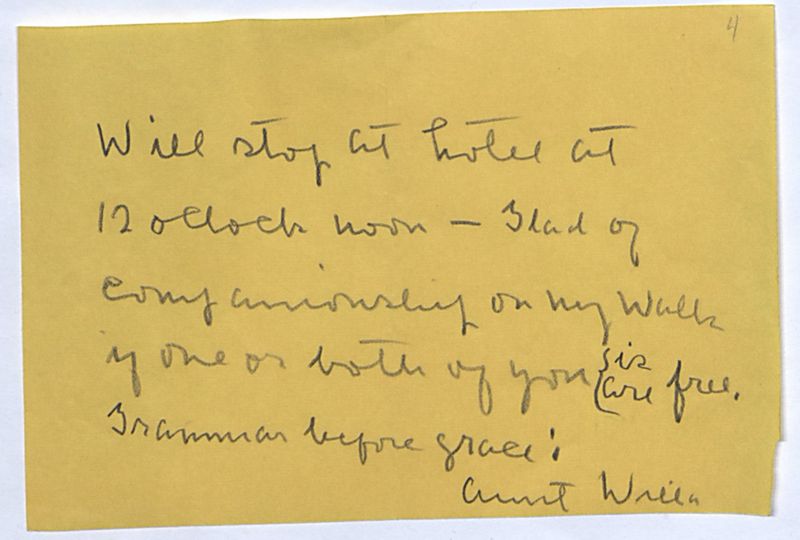 4
Will stop at hotel at
12 o'clock noon — Glad of
companionship on my walk
if one or both of you { is
are free.
Grammar before grace!
Aunt Willa